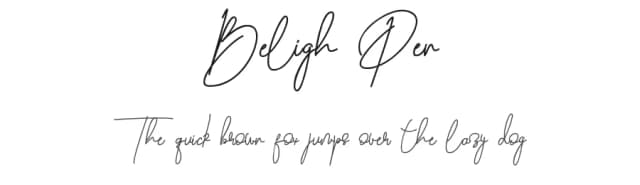 Beligh Pen
The quick brown fox jumps over the lazy dog